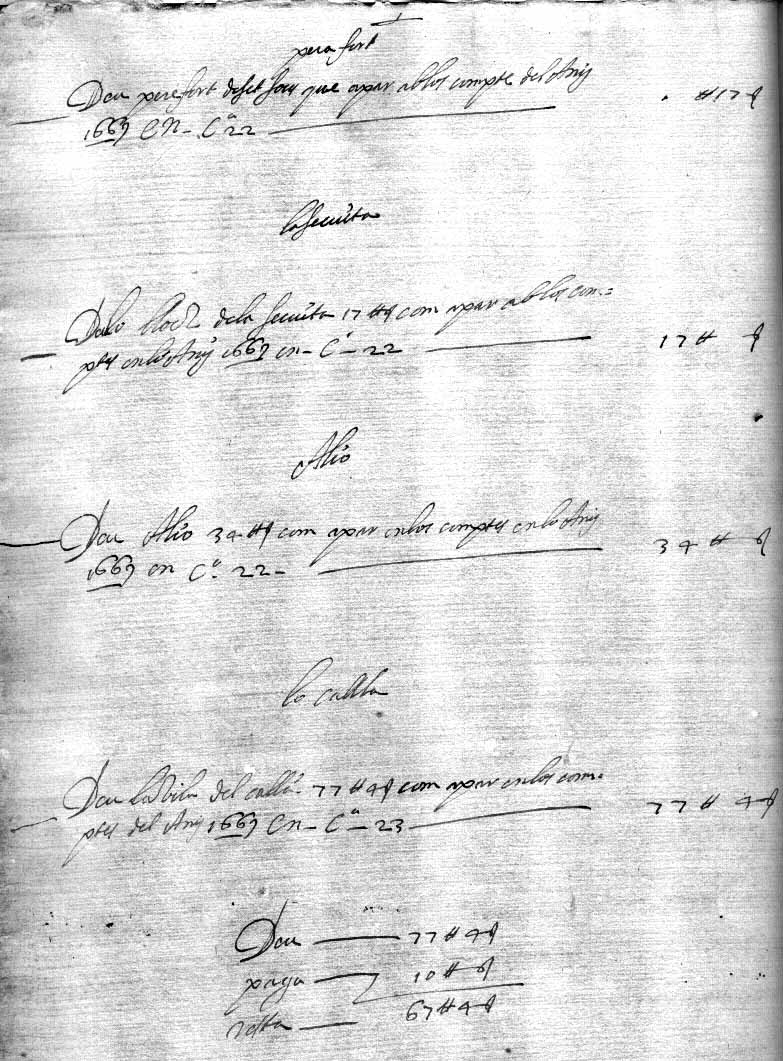 perafort
Deu perefort deset sous que apar ab los compte del Any
1669 en - C.ª 22 #17 ſ
la Secuita
Deu lo lloch dela Secuita 17 # ſ com apar ab los com:=
ptes en lo Any 1669 en - C.ª - 22 17 # ſ
Alio
Deu Alio 34 # ſ com apar en los comptes en lo Any
1669 en C.ª 22 - 34 # ſ
lo catlla
Deu la Vila del catlla 77 # 4 ſ com apar en los com=
ptes del Any 1669 en - C.ª - 23 77 # 4 ſ
Deu 77 # 4 ſ
paga 10 # ſ
resta 67 # 4 ſ